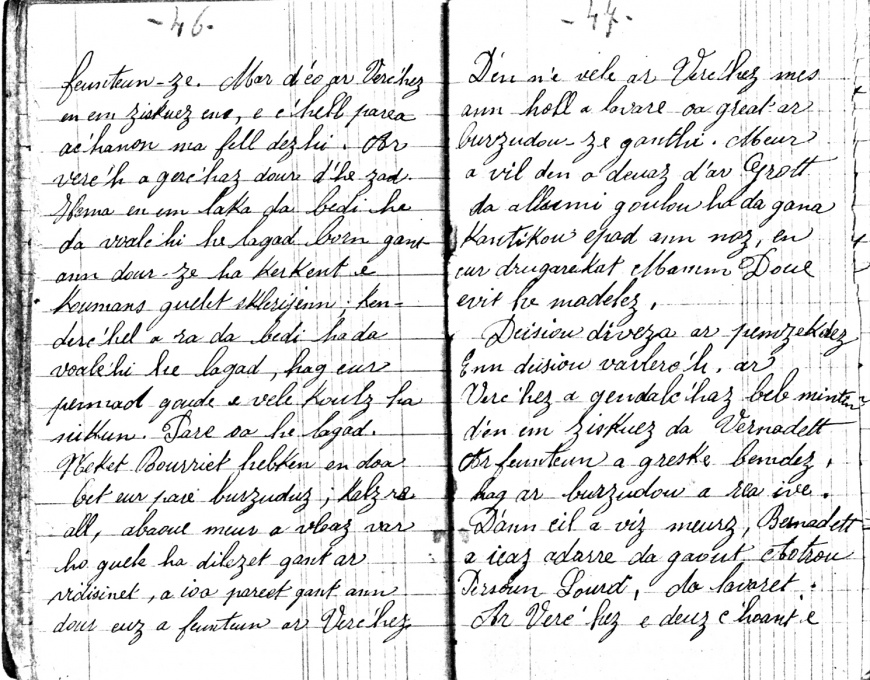 - 46 -
feunteun-ze. Mar d'eo ar Verc'hez
en em ziskuez eno, e c'hell parea
ac'hanon ma fell dezhi. Ar
verc'h a gerc'haz doure d'he zad.
Hema en em laka da bedi he
da voalc'hi he lagad born gant
ann dour-ze ha kerkent e
koumans guelet sklerijenn ; ken-
derc'hel a ra da bedi ha da
voalc'hi he lagad, hag eur
pennad goude e vele koulz ha
nikun. Pare oa he lagad.
Neket Bourriet hebken en doa
bet eur pare burzuduz ; kalz re
all, abaoue meur a vloaz var
ho guele ha dilezet gant ar
vidisinet, a ioa pareet gant ann
dour euz a feunteun ar Verc'hez
- 47 -
Den n'e vele ar Verc'hez mes
ann holl a lavare oa great ar
burzudou-ze ganthi. Meur
a vil den a deuaz d'ar Grott
da allumi goulou ha da gana
Kantikou epad ann noz, en
eur drugarekat Mamm Doue
evit he madelez.
Deisiou diveza ar pemzekdez
Enn deisiou varlerc'h, ar
Verc'hez a gendalc'haz beb mintin
d'en em ziskuez da Vernadett
Ar feunteun a greske bemdez,
hag ar burzudou a rea ive.
D'ann eil a viz meurz, Bernadett
a ieaz adarre da gaout Aotrou
Persoun Lourd, da lavaret :
Ar Verc'hez e deuz c'hoant e